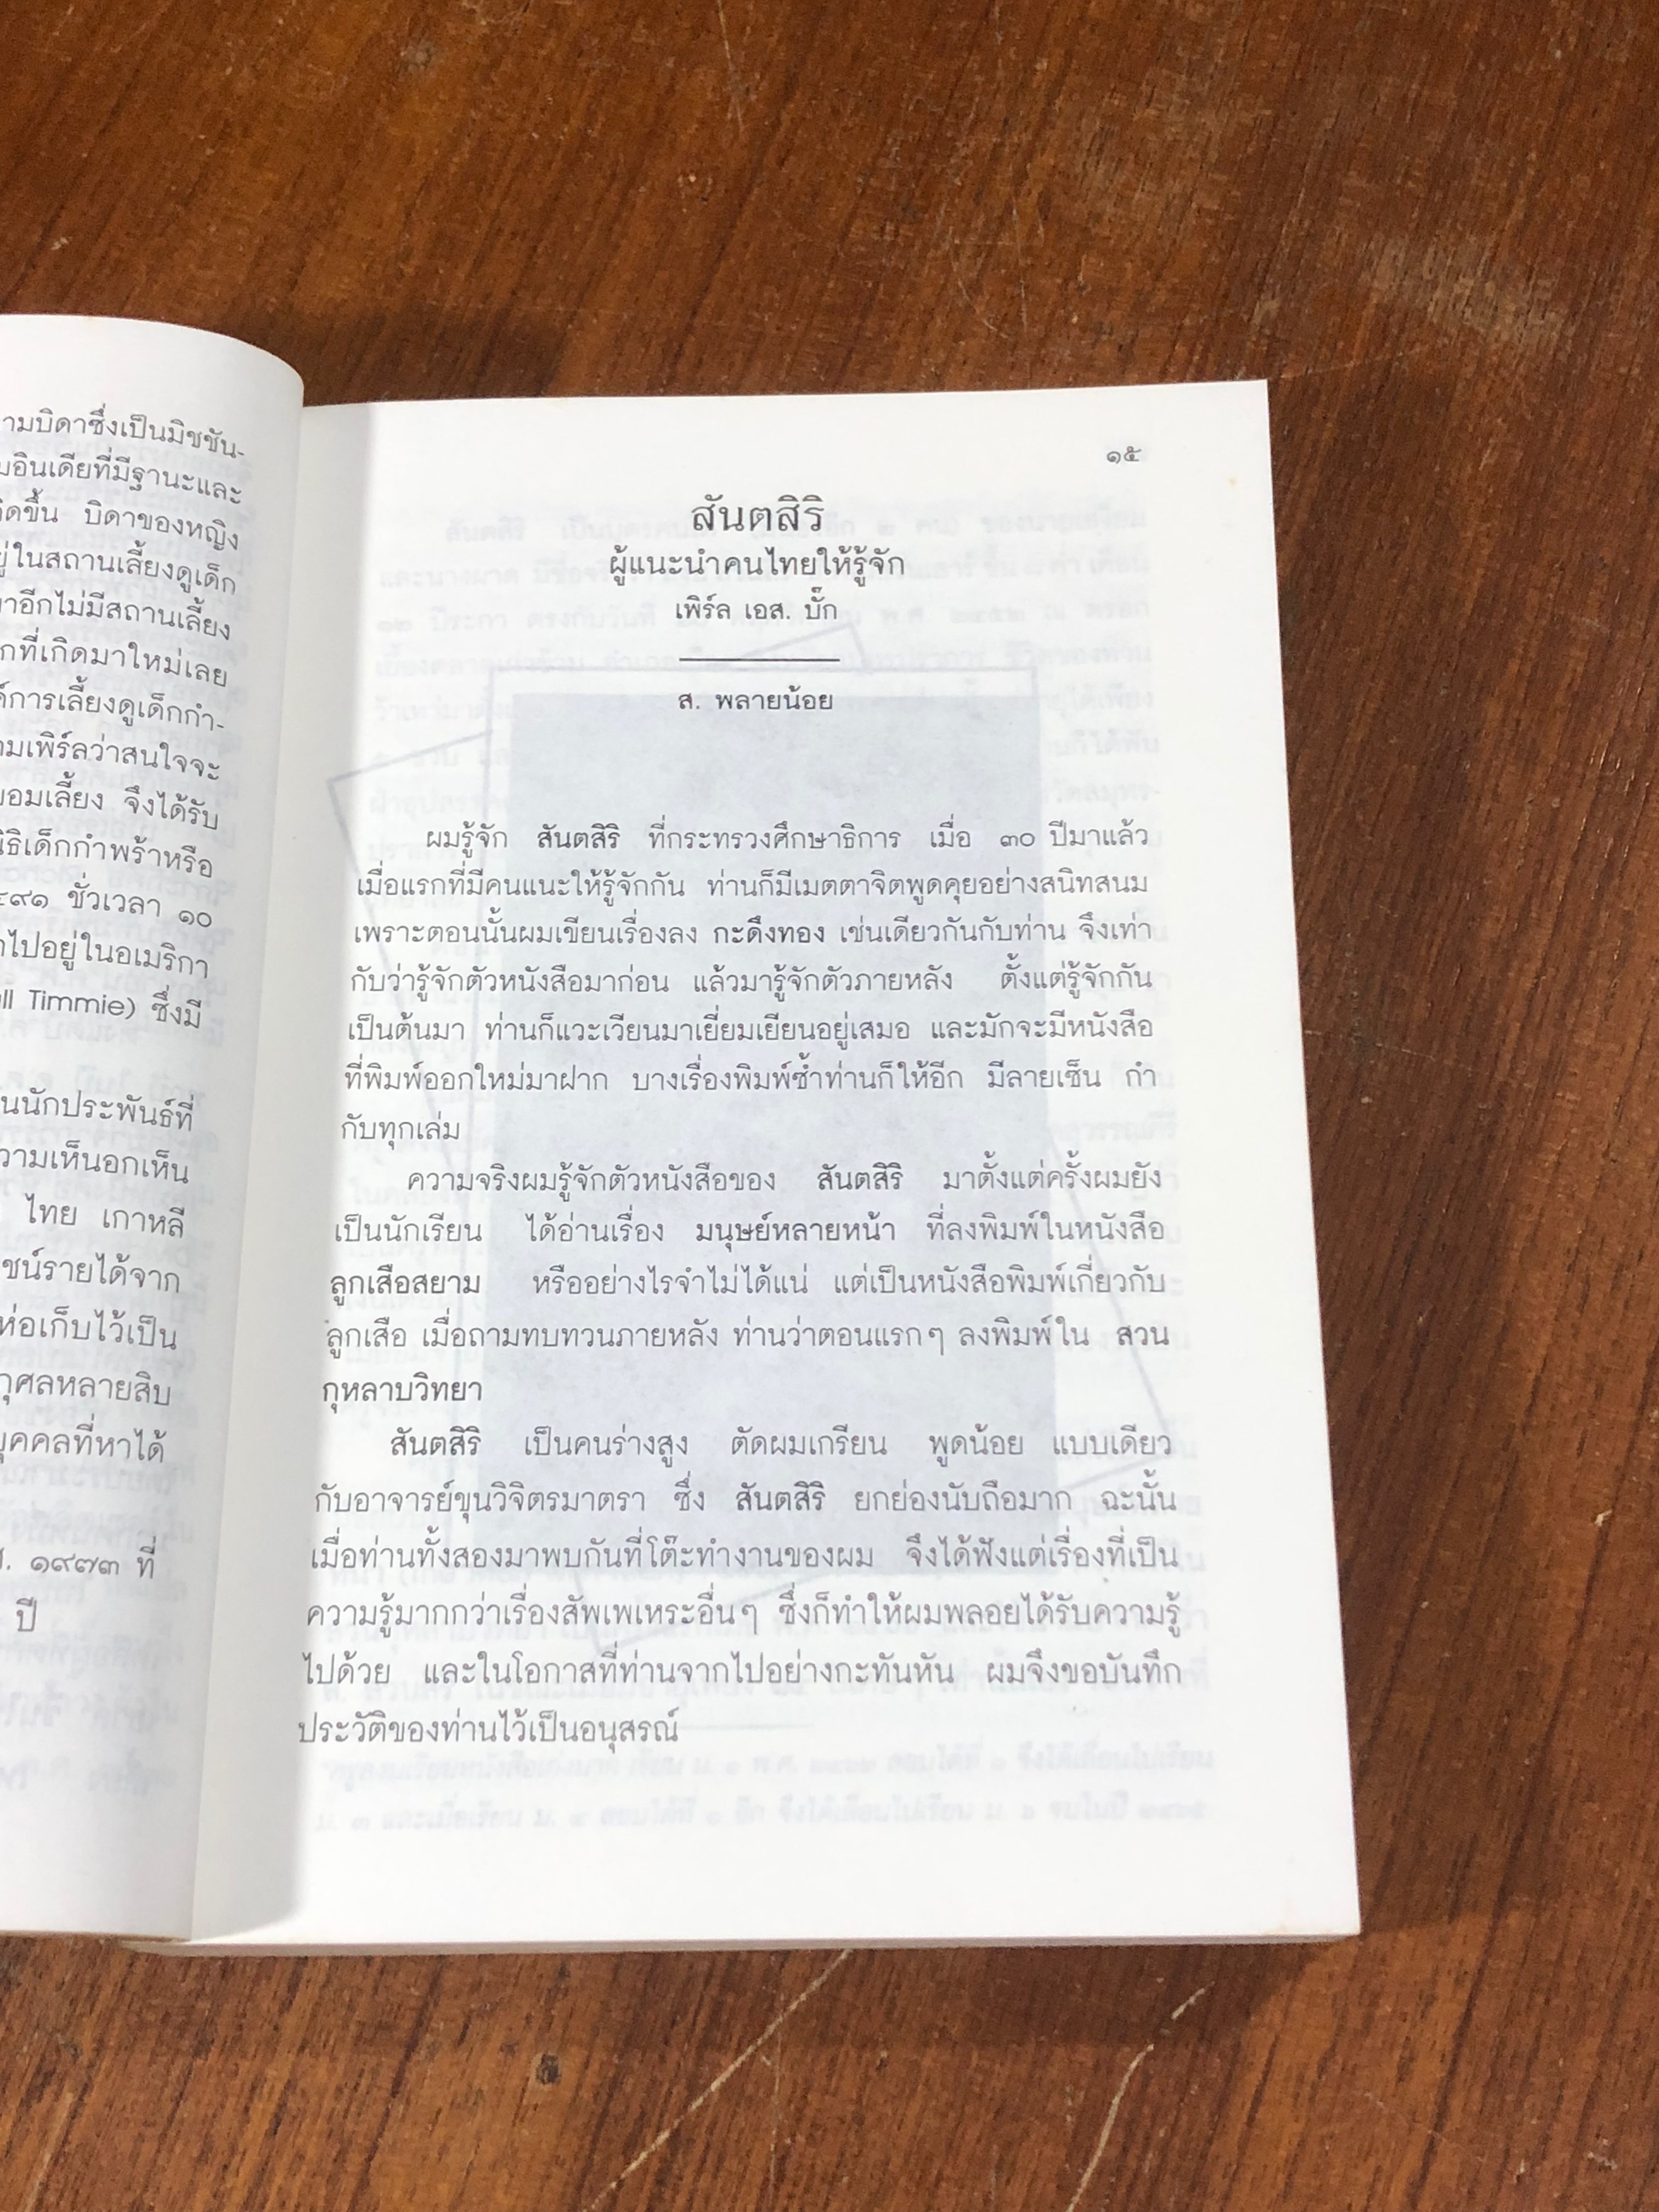 ามบิดาซึ่งเป็นมิชชัน-
อินเดียที่มีฐานะและ
ขึ้น บิดาของหญิง
ในสถานเลี้ยงดูเด็ก
อีกไม่มีสถานเลี้ยง
ที่เกิดมาใหม่เลย
การเลี้ยงดูเด็กกำ-
เพิร์ลว่าสนใจจะ
เลี้ยง จึงได้รับ
เด็กกำพร้าหรือ
๔๙๑ ชั่วเวลา ๑๐
ไปอยู่ในอเมริกา
ll Timmie) ซึ่งมี
นักประพันธ์ที่
วามเห็นอกเห็น
ไทย เกาหลี
ชน์รายได้จาก
ห่อเก็บไว้เป็น
กุศลหลายสิบ
บุคคลที่หาได้
. ๑๙๗๓ ที่
ปี
๑๕
สันตสิริ
ผู้แนะนำคนไทยให้รู้จัก
เพิร์ล เอส. บั๊ก
ส. พลายน้อย
ผมรู้จัก สันตสิริ ที่กระทรวงศึกษาธิการ เมื่อ ๓๐ ปีมาแล้ว
เมื่อแรกที่มีคนแนะให้รู้จักกัน ท่านก็มีเมตตาจิตพูดคุยอย่างสนิทสนม
เพราะตอนนั้นผมเขียนเรื่องลง กะดึงทอง เช่นเดียวกันกับท่าน จึงเท่า
กับว่ารู้จักตัวหนังสือมาก่อน แล้วมารู้จักตัวภายหลัง ตั้งแต่รู้จักกัน
เป็นต้นมา ท่านก็แวะเวียนมาเยี่ยมเยียนอยู่เสมอ และมักจะมีหนังสือ
ที่พิมพ์ออกใหม่มาฝาก บางเรื่องพิมพ์ซ้ำท่านก็ให้อีก มีลายเซ็น กำ
กับทุกเล่ม
ความจริงผมรู้จักตัวหนังสือของ สันตสิริ มาตั้งแต่ครั้งผมยัง
เป็นนักเรียน ได้อ่านเรื่อง มนุษย์หลายหน้า ที่ลงพิมพ์ในหนังสือ
ลูกเสือสยาม หรืออย่างไรจำไม่ได้แน่ แต่เป็นหนังสือพิมพ์เกี่ยวกับ
ลูกเสือ เมื่อถามทบทวนภายหลัง ท่านว่าตอนแรกๆ ลงพิมพ์ใน สวน
กุหลาบวิทยา
สันตสิริ เป็นคนร่างสูง ตัดผมเกรียน พูดน้อย แบบเดียว
กับอาจารย์ขุนวิจิตรมาตรา ซึ่ง สันตสิริ ยกย่องนับถือมาก ฉะนั้น
เมื่อท่านทั้งสองมาพบกันที่โต๊ะทำงานของผม จึงได้ฟังแต่เรื่องที่เป็น
ความรู้มากกว่าเรื่องสัพเพเหระอื่นๆ ซึ่งก็ทำให้ผมพลอยได้รับความรู้
ไปด้วย และในโอกาสที่ท่านจากไปอย่างกะทันหัน ผมจึงขอบันทึก
ประวัติของท่านไว้เป็นอนุสรณ์